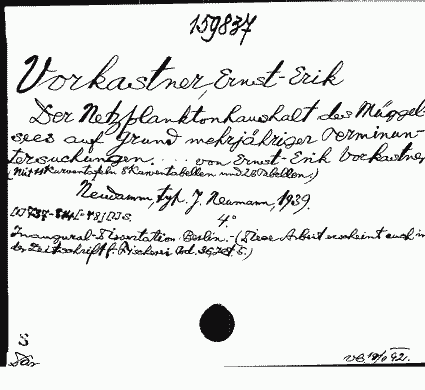 159837
Vorkastner, Ernst-Erik
Der Netzplanktonhaushalt des Müggel-
sees auf Grund mehrjähriger Terminun-
tersuchungen. . . . von Ernst-Erik Vorkastner
(Mit 11 Kurventafeln 8 Kurventabellen und 26 Tabellen.)
Neudamm, typ. J. Neumann, 1939.
4°
Inaugural-Dissertation. Berlin. - (Diese Arbeit erscheint auch in
der Zeitschrift f. Fischerei Bd. 36,
S